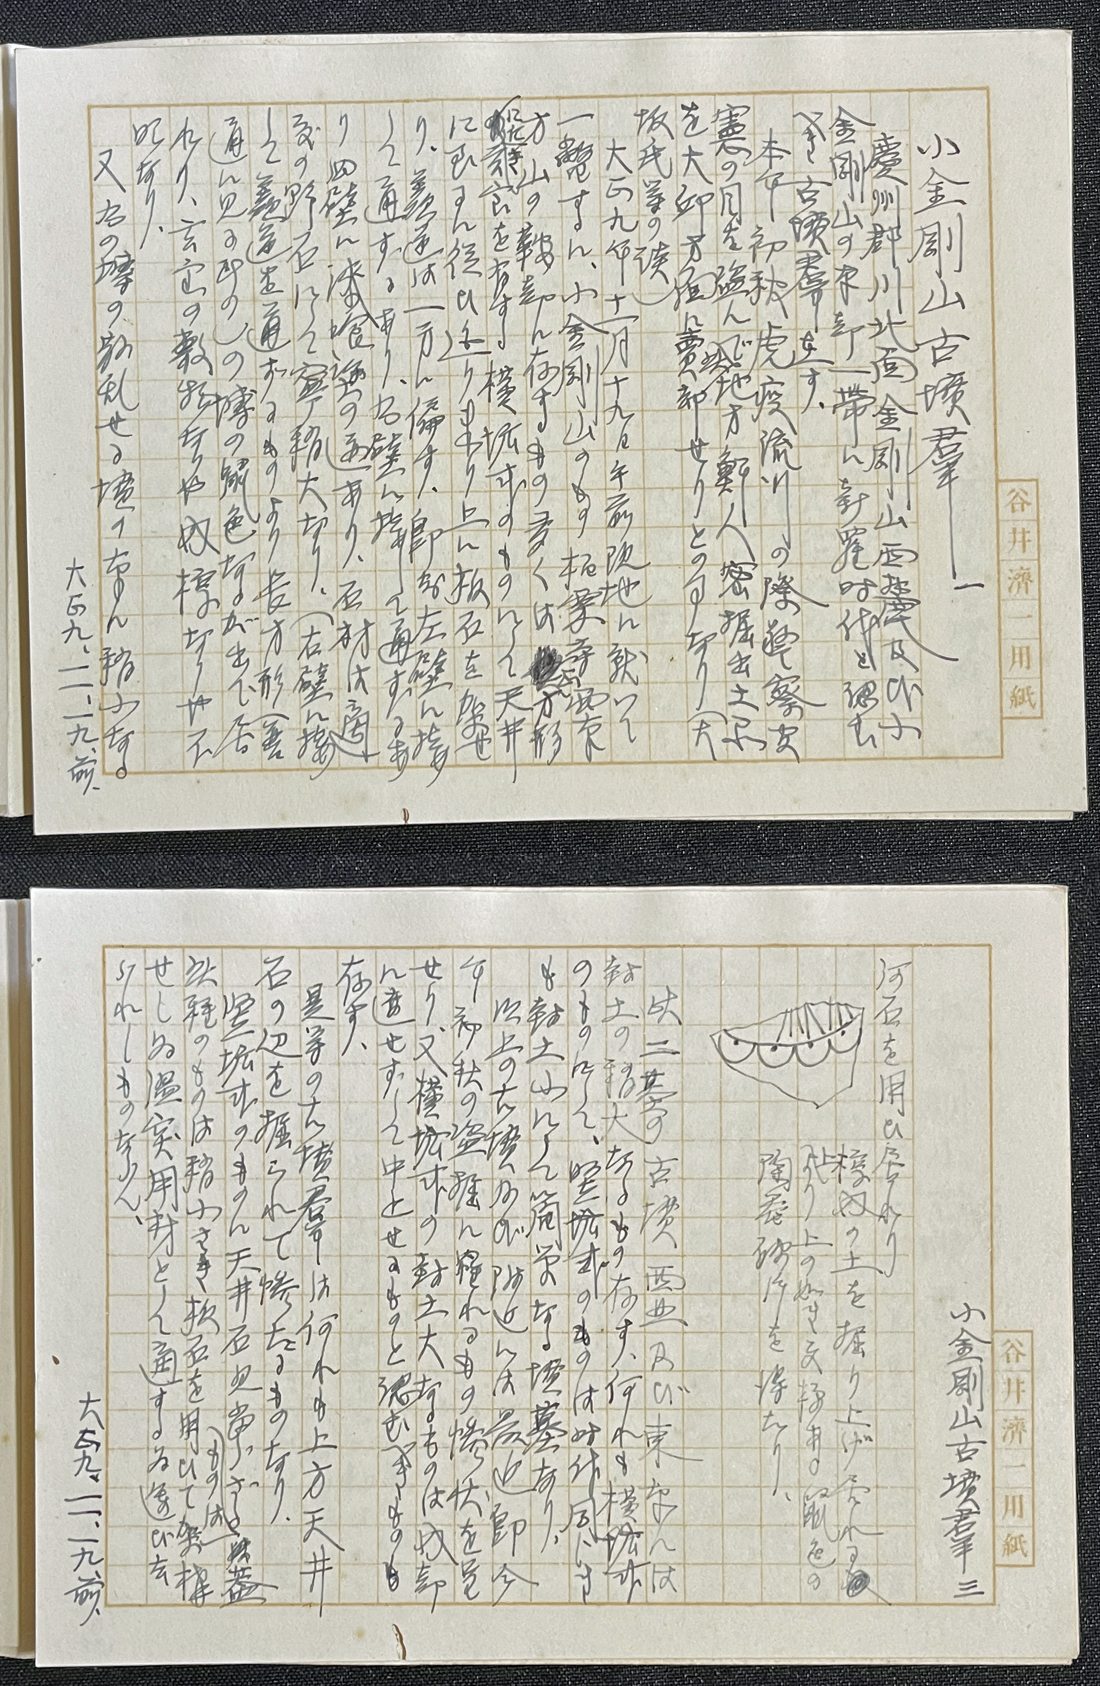 小金剛山古墳羣 一
慶州郡川北面金剛山西麓及び小
金剛山の東部一帶に新羅時代と認む
べき古墳羣在す、
本年初秋虎疫流行の際警察官
憲の目を盗んで地方鮮人密掘出土品
を大邱方面に賣却せりとの事なり(大
坂氏等の談)
大正九年十一月十九日午前現地に就いて
一瞥するに、小金剛山のもの栢栗寺
方山の鞍部に存するもの多くは方形
を有す横坑式のものにして天井
に到るに従ひ迫りまり上に板石を架せ
り、羨道は一方に偏す、即ち左壁に接
して通ずるあり、右壁に接して通ずるあ
り四壁に漆喰塗の迹あり、石材は適
宜の野石にて窄稍大なり、(右壁に接
して羨道を通ずるものより長方形(普
通に見る所の)の塼の鼠色なるが出で居
れり、玄室の敷物なりや或棺なりや不
明なり、
又右の塼の散乱せる墳の東に稍小なる
大正九、一一、一九、前、
谷井濟一用紙
小金剛山古墳羣 三
河石を用ひ居れり
槨内の土を掘り上げ居れる
より上の如き文様ある鼠色の
陶器破片を得たり、
此二基の古墳西北及び東方には
封土の稍大なるもの存す、何れも横坑式
のものにして、竪坑式のものは時代同じき
も封土小にして簡単なる墳墓なり、
以上の古墳及び附近には最近即今
年初秋の盗掘に罹れるもの惨状を呈
せり、又横坑式の封土大なるものは内部
に達せずして中止せるものと認むべきものも
存す、
是等の古墳羣は何れも上方天井
石の辺を掘られて惨たるものなり、
竪坑式のものに天井石見当らざる蓋
此種のものは稍小さき板石を用ひて架構
せしめ温突用材として適する為運び去
られしものならん、
大正九、一一、一九、前、
谷井濟一用紙